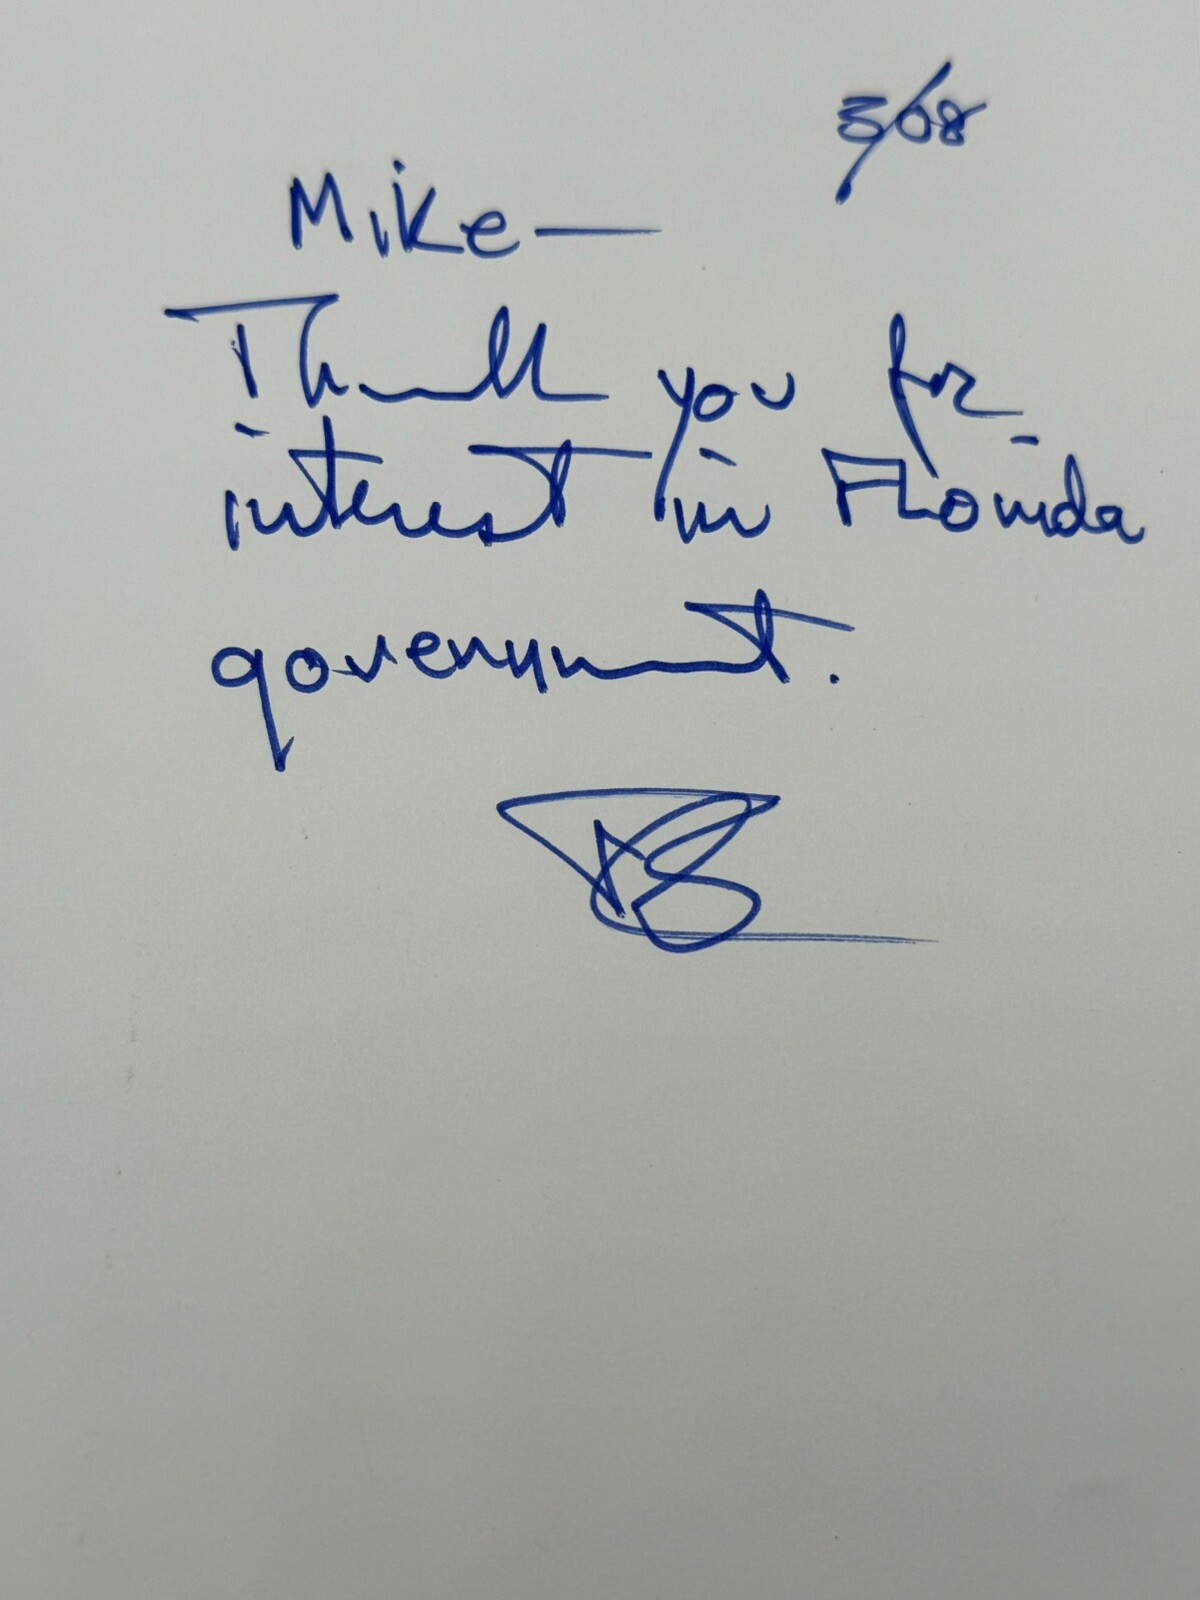 3/08
Mike —
Thank you for
interest in Florida
government.